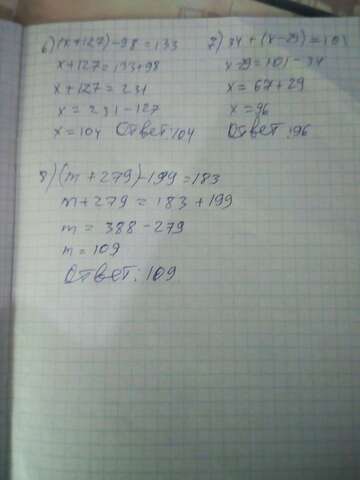 6) (x+127)-98=133
x+127=133+98
x+127=231
x=231-127
x=104 Ответ: 104
7) 34+(x-29)=101
x-29=101-34
x=67+29
x=96
Ответ: 96
8) (m+279)-199=183
m+279=183+199
m=388-279
m=109
Ответ: 109